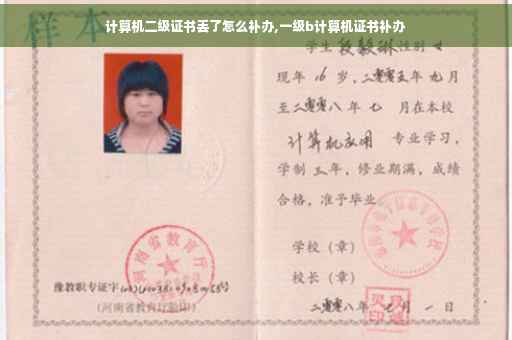 计算机二级证书丢了怎么补办,一级b计算机证书补办
样本
学生 性别 女
现年 16 岁,二零零五年 九月
至二零零八年 七 月在本校
计算机应用 专业学习,
学制 三 年,修业期满,成绩
合格,准予毕业
学校(章)
校长(章)
二零零八年 七 月 一 日
河南省教育厅
豫教职专证字
(河南省教育厅验印)